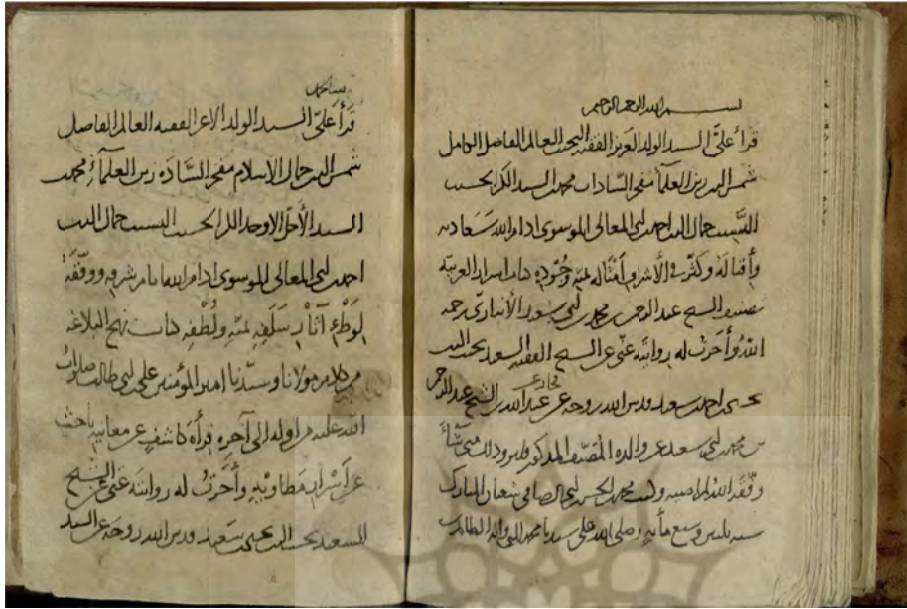 بسم الله الرحمن الرحيم
قرأ علىّ السيد الولد العزيز الفقيه العالم الفاضل الكامل
شمس الدين زين العلمآء مفخر السّادات محمد بن السيد الكبير الحسيب
النسيب جمال الدين احمد بن ابي المعالي الموسوي ادام الله سَعَادته
وأقباله وكثّر في الأشراف أمثاله بمنّه وجُوده كتاب اسرار العربيّة
تصنيف الشيخ عبد الرحمن بن محمد بن ابي سعيد الأنباريّ رحمه
الله وأجزت له روايته عنّي عن الشيخ الفقيه السعيد نجيب الدين
يحيى بن احمد بن سعيد قدس الله روحه عن عبد الله بن الشيخ عبد الرحمن
بن محمد بن ابي سعيد عن والده المصنّف المذكور فليرو ذلك متى شآء
وفّقه الله لمراضيه وكتب محمد بن الحسن بن ابي الرضا في شعبان المبارك
سنة ثلثين وسبع مأية وصلى الله على سيدنا محمد النبي وآله الطاهرين
قرأ علىّ السيد الولد الاعز الفقيه العالم الفاضل
شمس الدين جمال الاسلام مفخر السّادة زين العلمآء محمد بن
السيد الأجلّ الاوحد الكبير الحسيب النسيب جمال الدين
احمد بن ابي المعالي الموسوي ادام الله ايام شرفه ووفّقه
لوطء آثار سَلَفِه بمنّه ولُطْفِه كتاب نهج البلاغة
من كلام مولانا وسيّدنا امير المؤمنين علي بن ابي طالب صلوات
الله عليه من اوله الى آخره قرأة كاشفٍ عن معانيه باحثٍ
عن أسْرار مَطاويْه وأجزتُ له روايته عنّي عن الشيخ
السعيد نجيب الدين يحيى بن سَعيد قدس الله روحه عن السيد